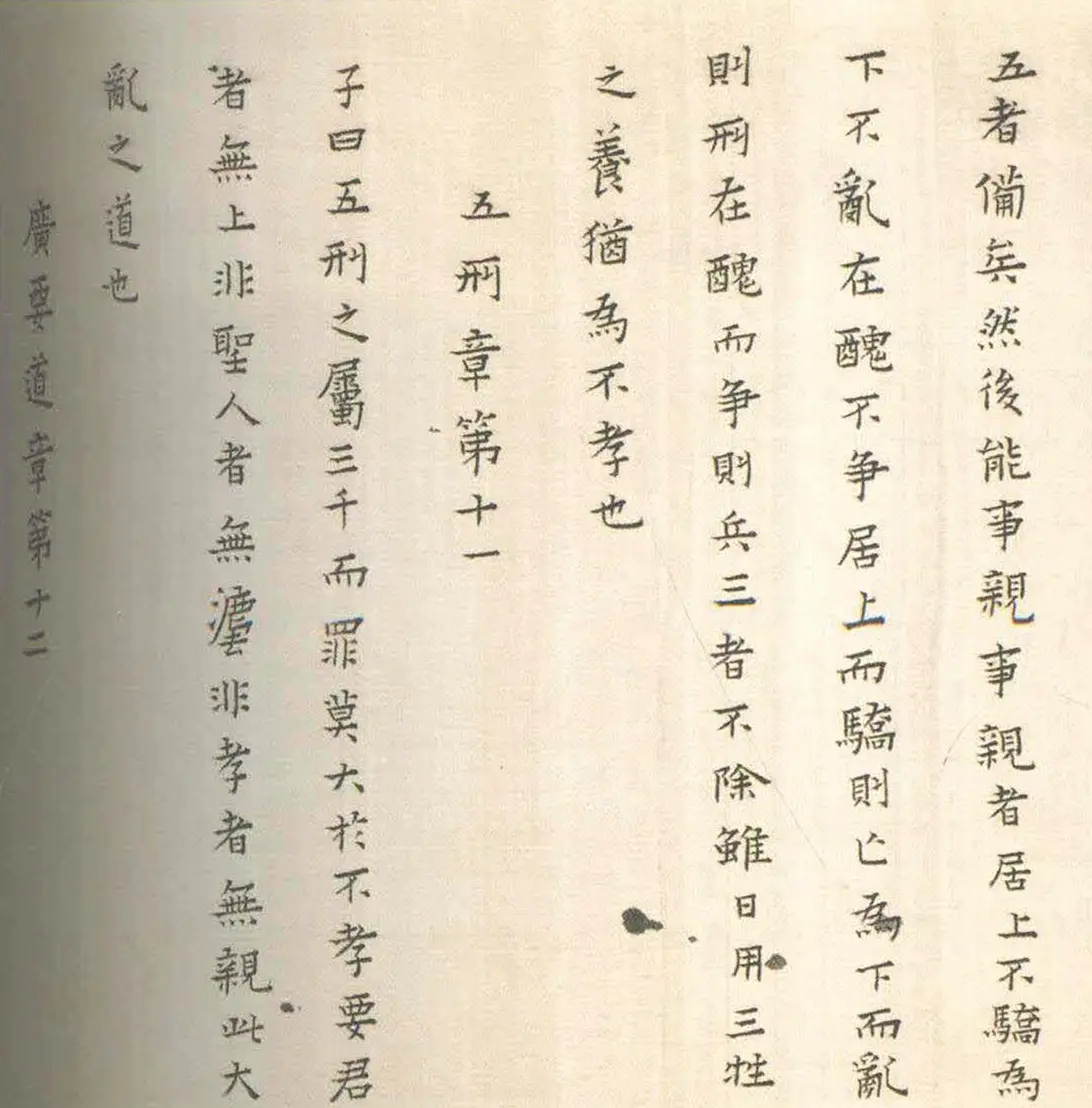 五者備矣然後能事親事親者居上不驕為
下不亂在醜不爭居上而驕則亡為下而亂
則刑在醜而爭則兵三者不除雖日用三牲
之養猶為不孝也
五刑章第十一
子曰五刑之屬三千而罪莫大於不孝要君
者無上非聖人者無灋非孝者無親此大
亂之道也
廣要道章第十二